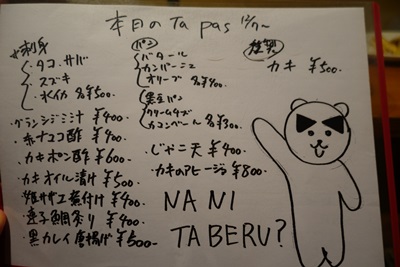 本日のTapas 12/7~
刺身
・タコ・サバ
・スズキ
・水イカ 各¥500.
・グランシジミ汁 ¥400
・赤ナマコ酢 ¥400
・カキポン酢 ¥600
・カキオイル漬け ¥500
・姫サザエ煮付け ¥400
・連子鯛炙り ¥400
・黒カレイ唐揚げ ¥500
パン
・バタール
・カンパーニュ
・オリーブ 各¥400
・黒豆パン
・クリームチーズ
・カマンベール 各¥300.
・じゃこ天 ¥400
・カキのアヒージョ ¥800
燻製
カキ ¥500.
NANI
TABERU?